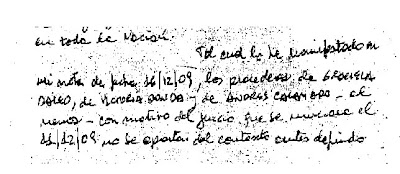 en toda la Nación.
Tal cual lo he manifestado en
mi nota de fecha 16/12/09, los procederes de GRACIELA
DALEO, de VICTORIA DONDA y de ANDRES CASTILLO - al
menos - con motivo del juicio que se iniciara el
11/12/09 no se apartan del contexto antes definido